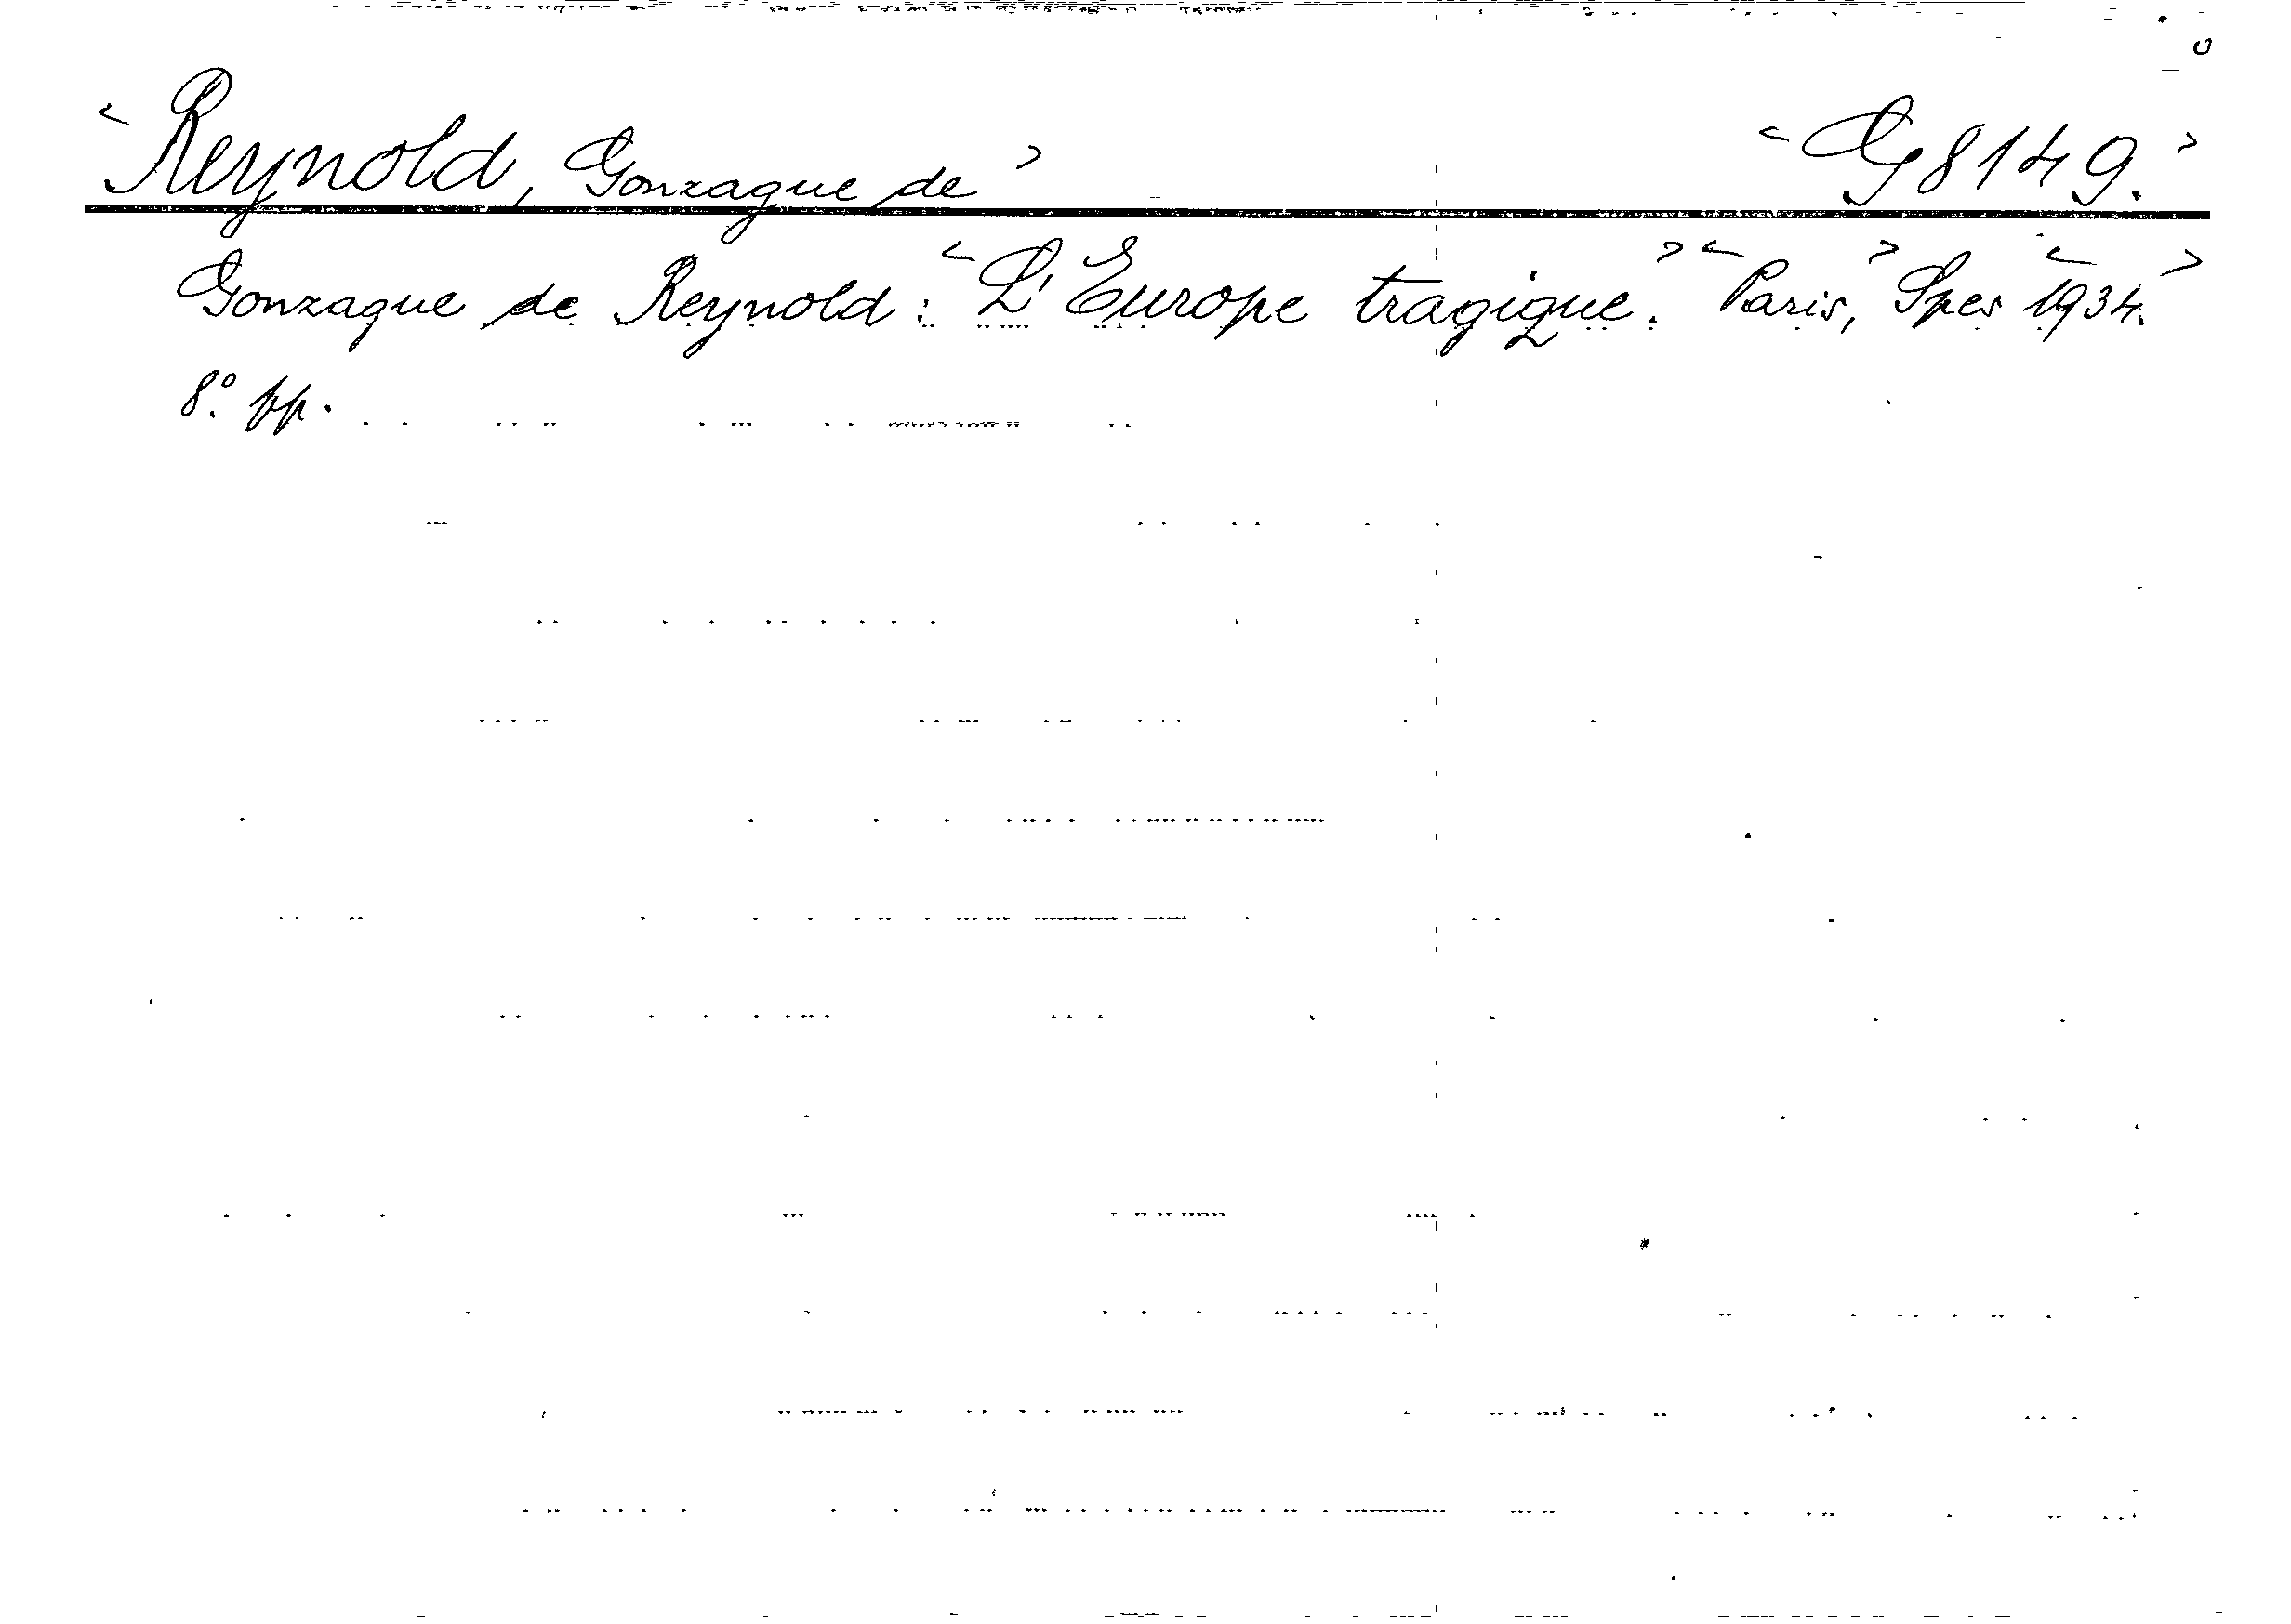 <Reynold, Gonzague de> <G 8149.>
Gonzague de Reynold: <L'Europe tragique.> <Paris,> Spes <1934.>
8°. pp.